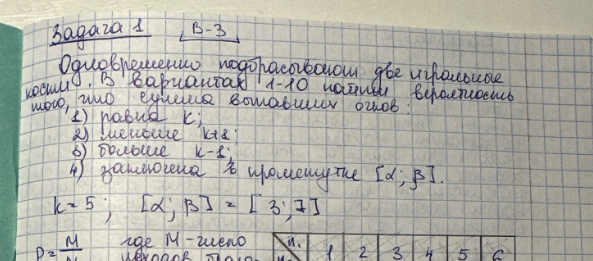 Задача 1 В-3
Одновременно подбрасывают две игральные
кости. В вариантах 1-10 найти вероятность
того, что сумма выпавших очков:
1) равна K;
2) меньше k+1;
3) больше k-1;
4) заключена в промежутке [α; β].
k=5; [α; β] = [3; 7]
P = M где M-число n. 1 2 3 4 5 6
исходов